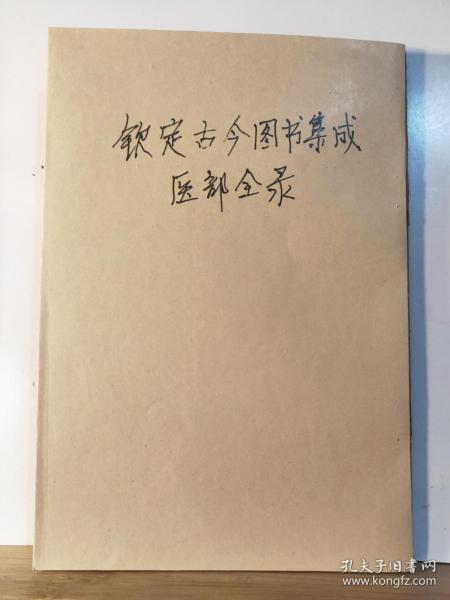 钦定古今图书集成
医部全录
孔夫子旧书网
www.kongfz.com